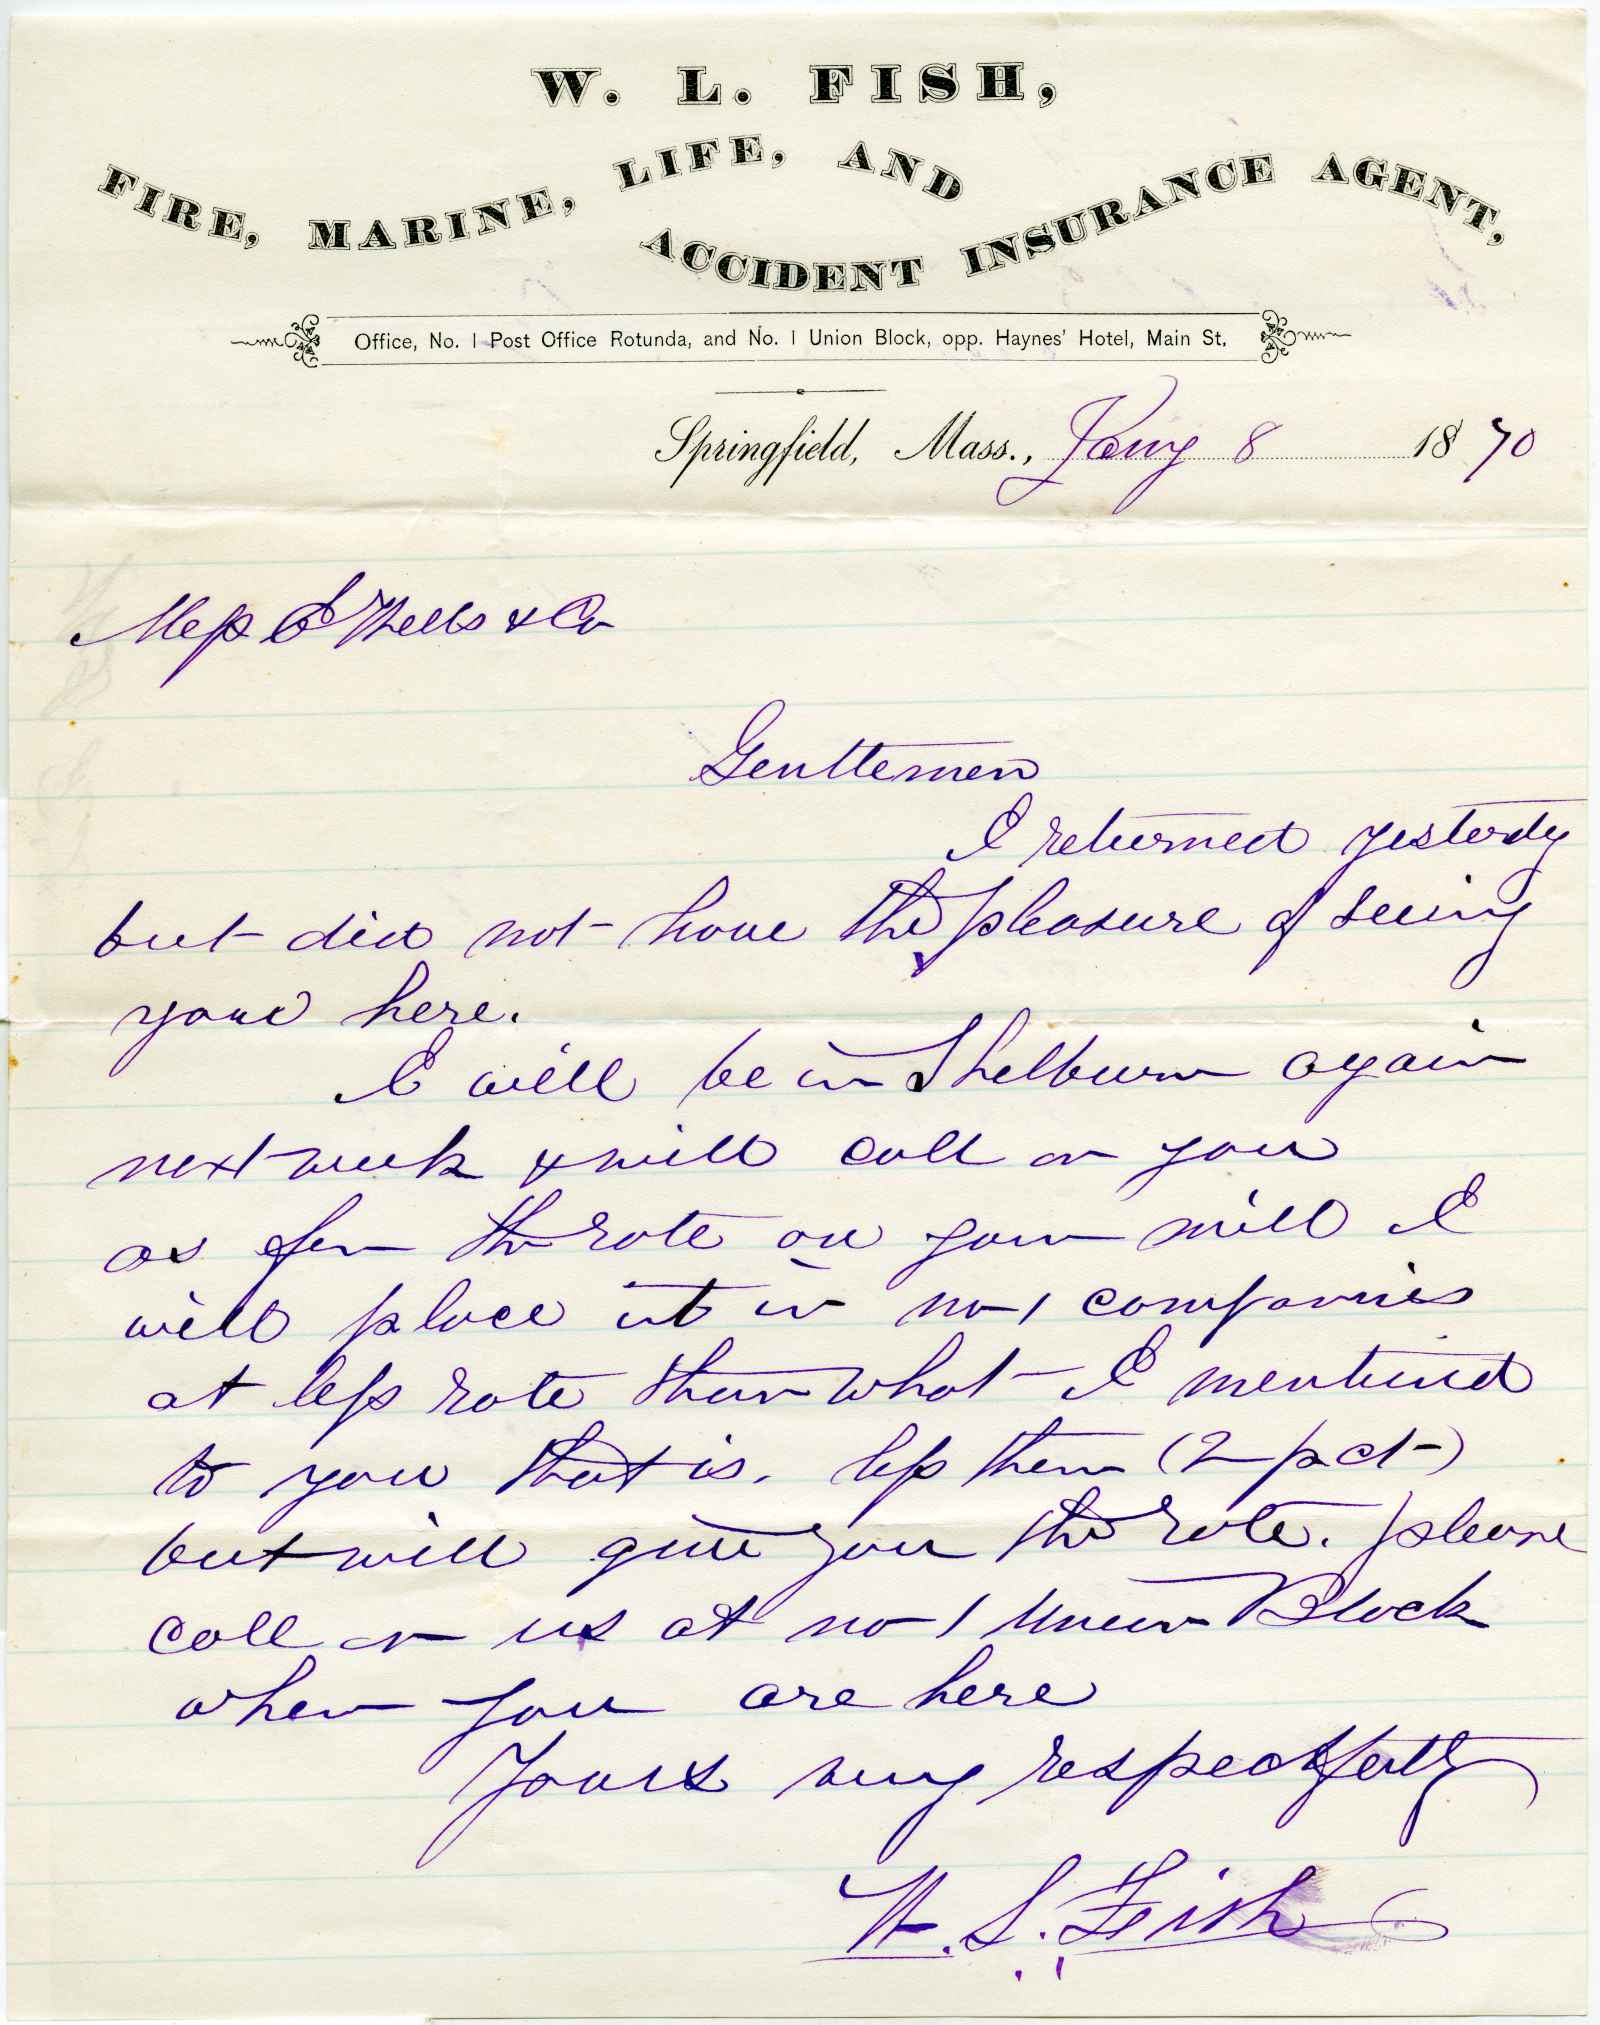 W. L. FISH,
FIRE, MARINE, LIFE, AND
ACCIDENT INSURANCE AGENT,
Office, No. 1 Post Office Rotunda, and No. 1 Union Block, opp. Haynes' Hotel, Main St.
Springfield, Mass., Jany 8 1870
Mess Wells & Co
Gentlemen
I returned yesterdy
but did not have the pleasure of seeing
you here.
I will be in Shelburn again
next week & will call on you
as for the rate on your mill I
will place it in no 1 companies
at less rate than what I mentiend
to you that is. less then (2 p ct)
but will give you the rate. please
call on us at no 1 Union Block
when you are here
Yours very respectfully
W. L. Fish